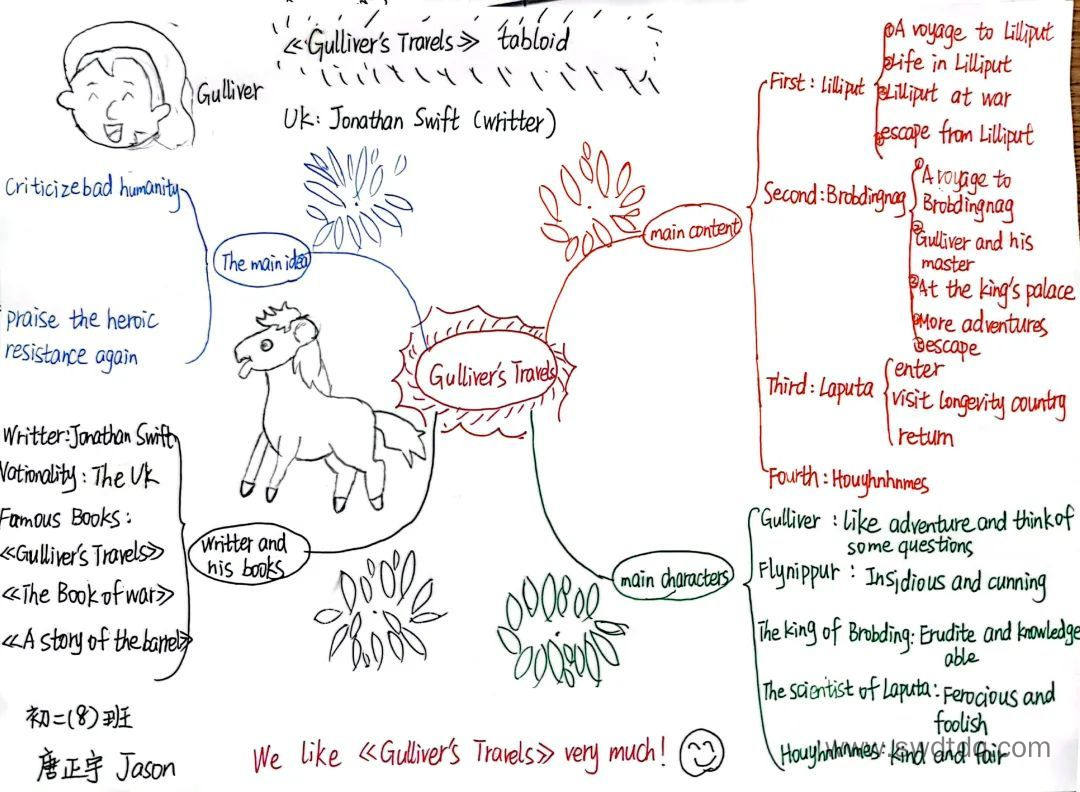 《Gulliver's Travels》 tabloid
Gulliver
UK: Jonathan Swift (writter)
Criticize bad humanity
The main idea
praise the heroic
resistance again
main content
First: Lilliput
①A voyage to Lilliput
②Life in Lilliput
③Lilliput at war
④escape from Lilliput
Second: Brobdingnag
①A voyage to
Brobdingnag
②Gulliver and his
master
③At the king's palace
④More adventures
⑤escape
Third: Laputa
enter
visit longevity country
return
Fourth: Houyhnhnmes
Gulliver's Travels
Writter: Jonathan Swift
Nationality: The UK
Famous Books:
《Gulliver's Travels》
《The Book of war》
《A story of the barrel》
writter and
his books
main characters
Gulliver: Like adventure and think of
some questions
Flynippur: Insidious and cunning
The king of Brobding: Erudite and knowledge
able
The scientist of Laputa: Ferocious and
foolish
Houyhnhnmes: kind and fair
初二(8)班
唐正宇 Jason
We like 《Gulliver's Travels》 very much!